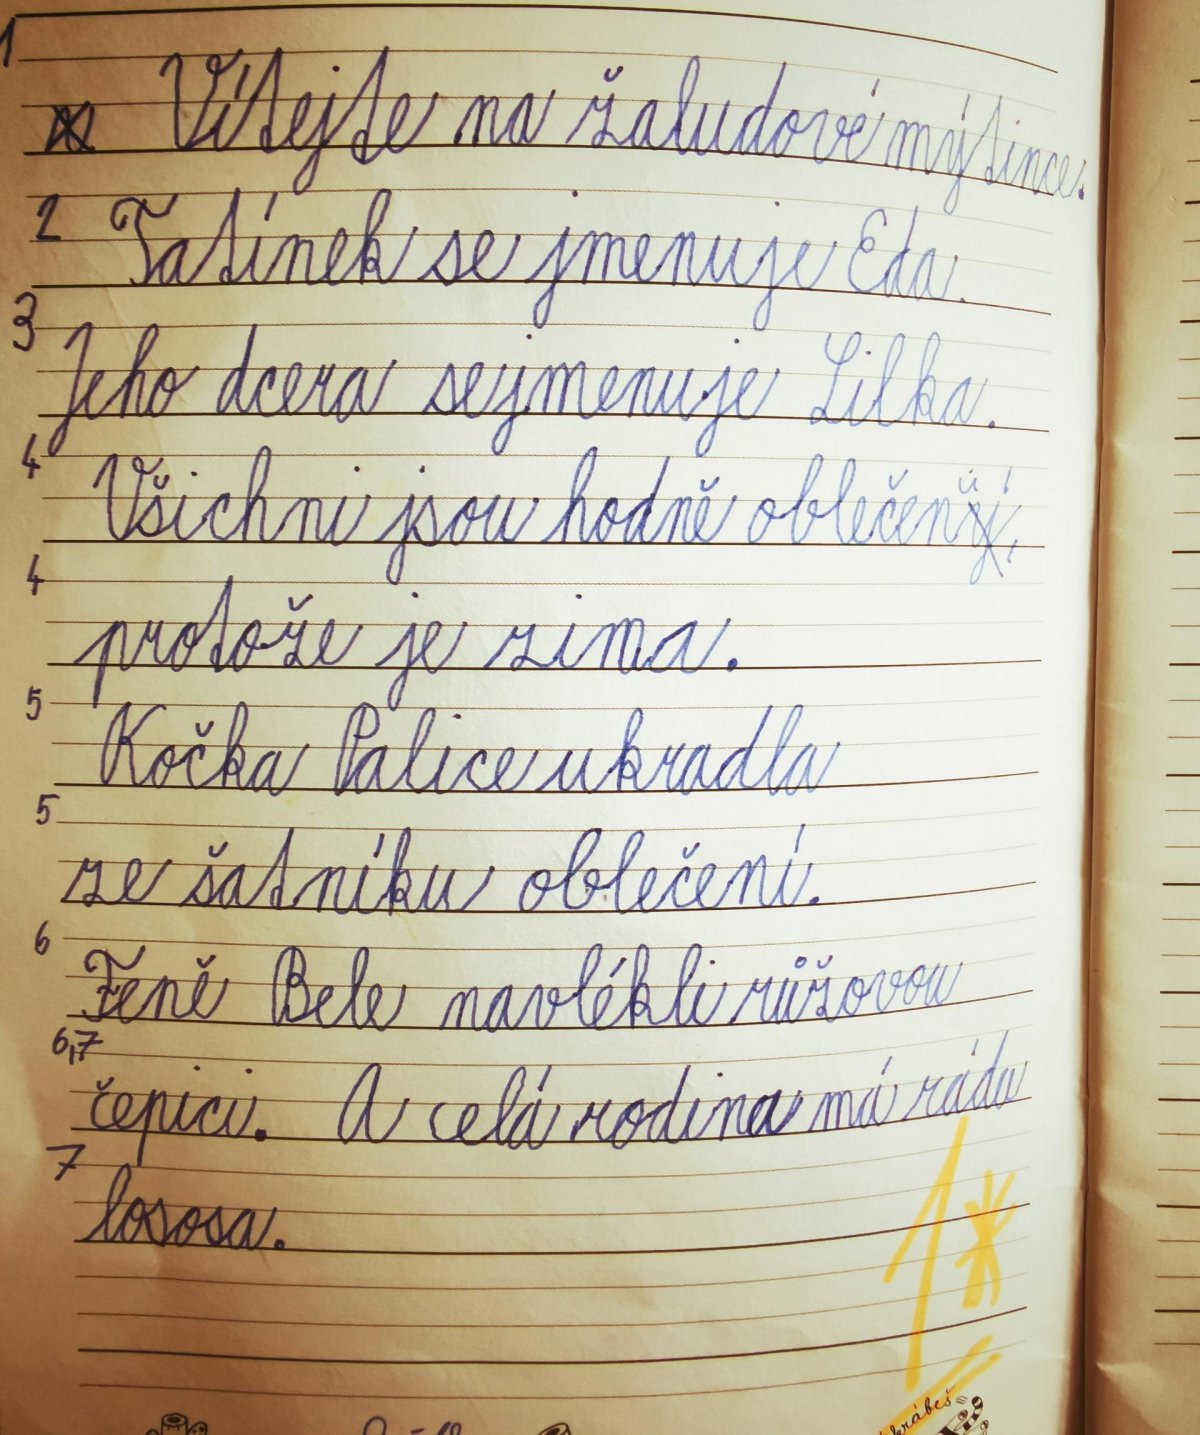 1 Vítejte na žaludové mýtince.
2 Tatínek se jmenuje Eda.
3 Jeho dcera se jmenuje Lilka.
4 Všichni jsou hodně oblečeni,
4 protože je zima.
5 Kočka Palice ukradla
5 ze šatníku oblečení.
6 Feně Bele navlékli růžovou
6,7 čepici. A celá rodina má ráda
7 lososa.
1*